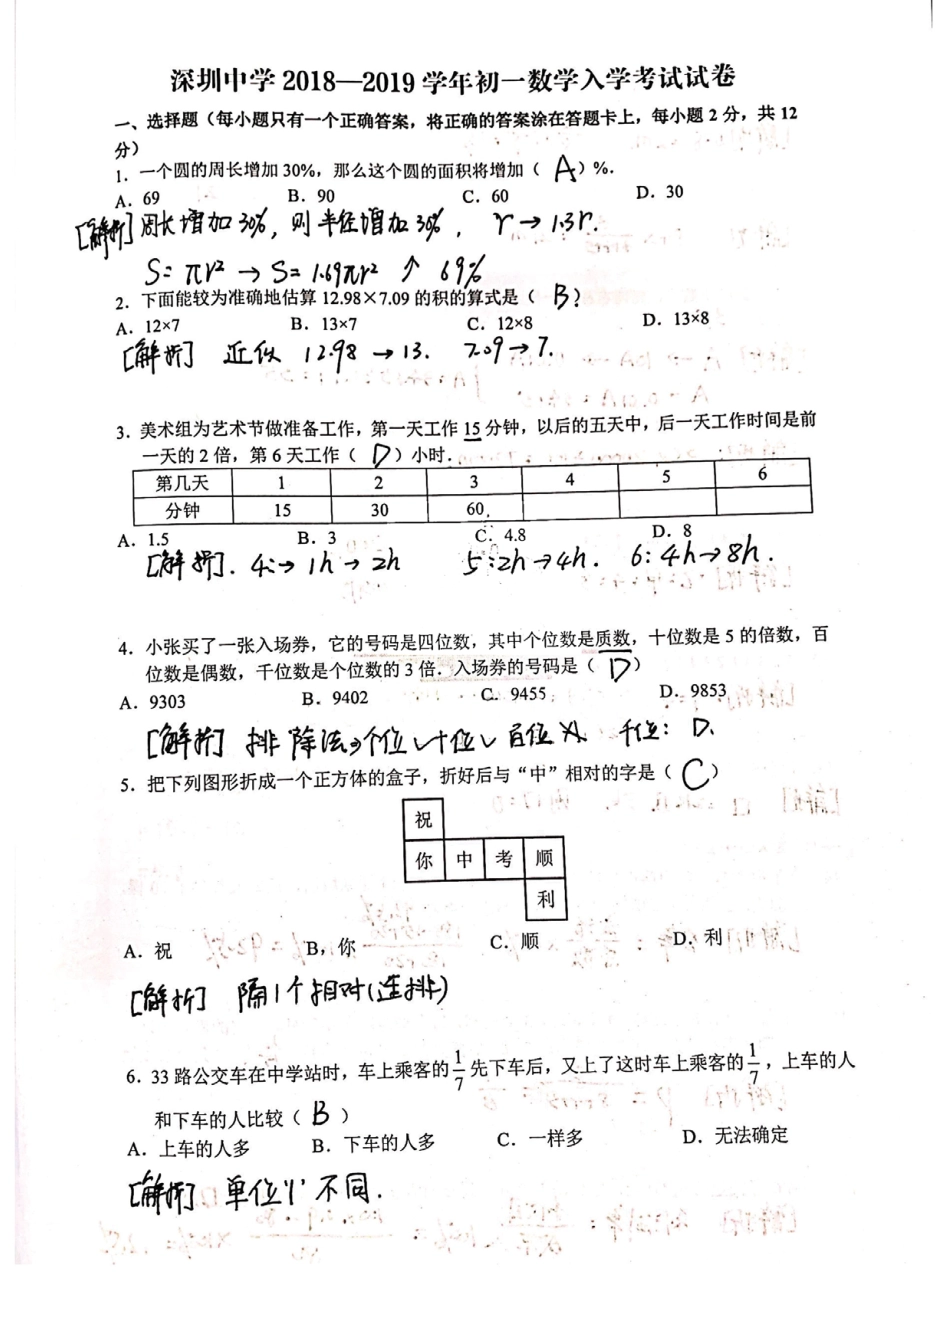 深圳中学 2018—2019 学年初一数学入学考试试卷
一、选择题（每小题只有一个正确答案，将正确的答案涂在答题卡上，每小题 2 分，共 12
分）
1．一个圆的周长增加 30%，那么这个圆的面积将增加（ A ）%．
A．69 B．90 C．60 D．30
[解析] 周长增加 30%, 则半径增加 30%, r → 1.3r.
S= πr² → S= 1.69πr² ↑ 69%
2．下面能较为准确地估算 12.98×7.09 的积的算式是（ B ）
A．12×7 B．13×7 C．12×8 D．13×8
[解析] 近似 12.98 → 13. 7.09 → 7.
3．美术组为艺术节做准备工作，第一天工作 15 分钟，以后的五天中，后一天工作时间是前
一天的 2 倍，第 6 天工作（ D ）小时．
第几天 1 2 3 4 5 6
分钟 15 30 60
A．1.5 B．3 C．4.8 D．8
[解析]. 4: → 1h → 2h 5: 2h → 4h. 6: 4h → 8h.
4．小张买了一张入场券，它的号码是四位数，其中个位数是质数，十位数是 5 的倍数，百
位数是偶数，千位数是个位数的 3 倍．入场券的号码是（ D ）
A．9303 B．9402 C．9455 D．9853
[解析] 排除法→个位√十位√百位 千位: D.
5．把下列图形折成一个正方体的盒子，折好后与“中”相对的字是（ C ）
祝
你 中 考 顺
利
A．祝 B，你 C．顺 D．利
[解析] 隔1个相对(连排)
6．33 路公交车在中学站时，车上乘客的 1/7 先下车后，又上了这时车上乘客的 1/7，上车的人
和下车的人比较（ B ）
A．上车的人多 B．下车的人多 C．一样多 D．无法确定
[解析] 单位“1”不同.